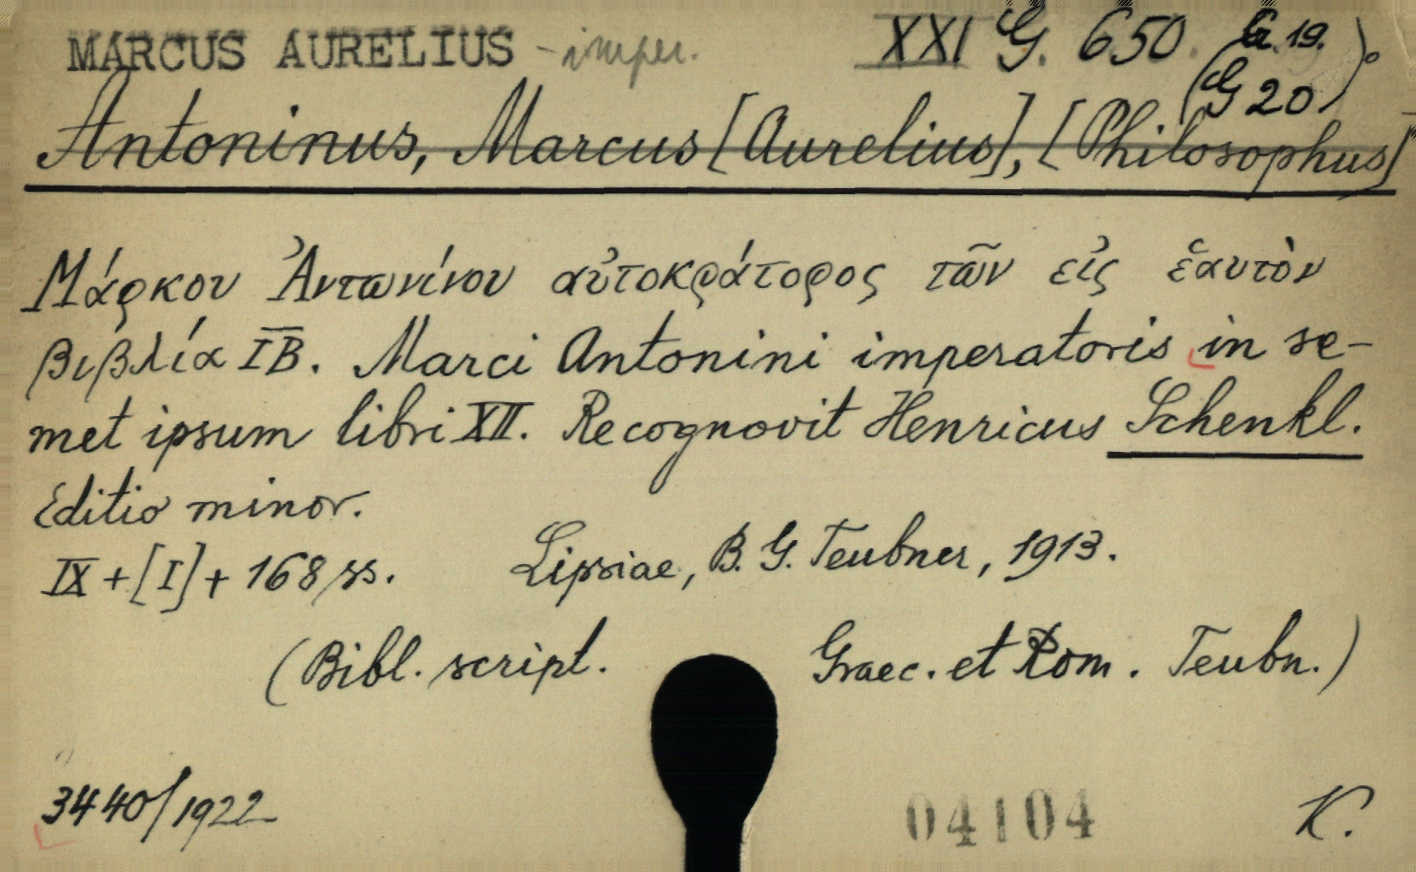 MARCUS AURELIUS - imper. XXI G. 650. Gr. 19.
(G 20).
Antoninus, Marcus [Aurelius], [Philosophus]
Μάρκου Ἀντωνίνου αὐτοκράτορος τῶν εἰς ἑαυτὸν
βιβλία IB. Marci Antonini imperatoris in se-
met ipsum libri XII. Recognovit Henricus Schenkl.
Editio minor.
IX + [I] + 168 ss. Lipsiae, B. G. Teubner, 1913.
(Bibl. script. Graec. et Rom. Teubn.)
3440/1922 04104 K.